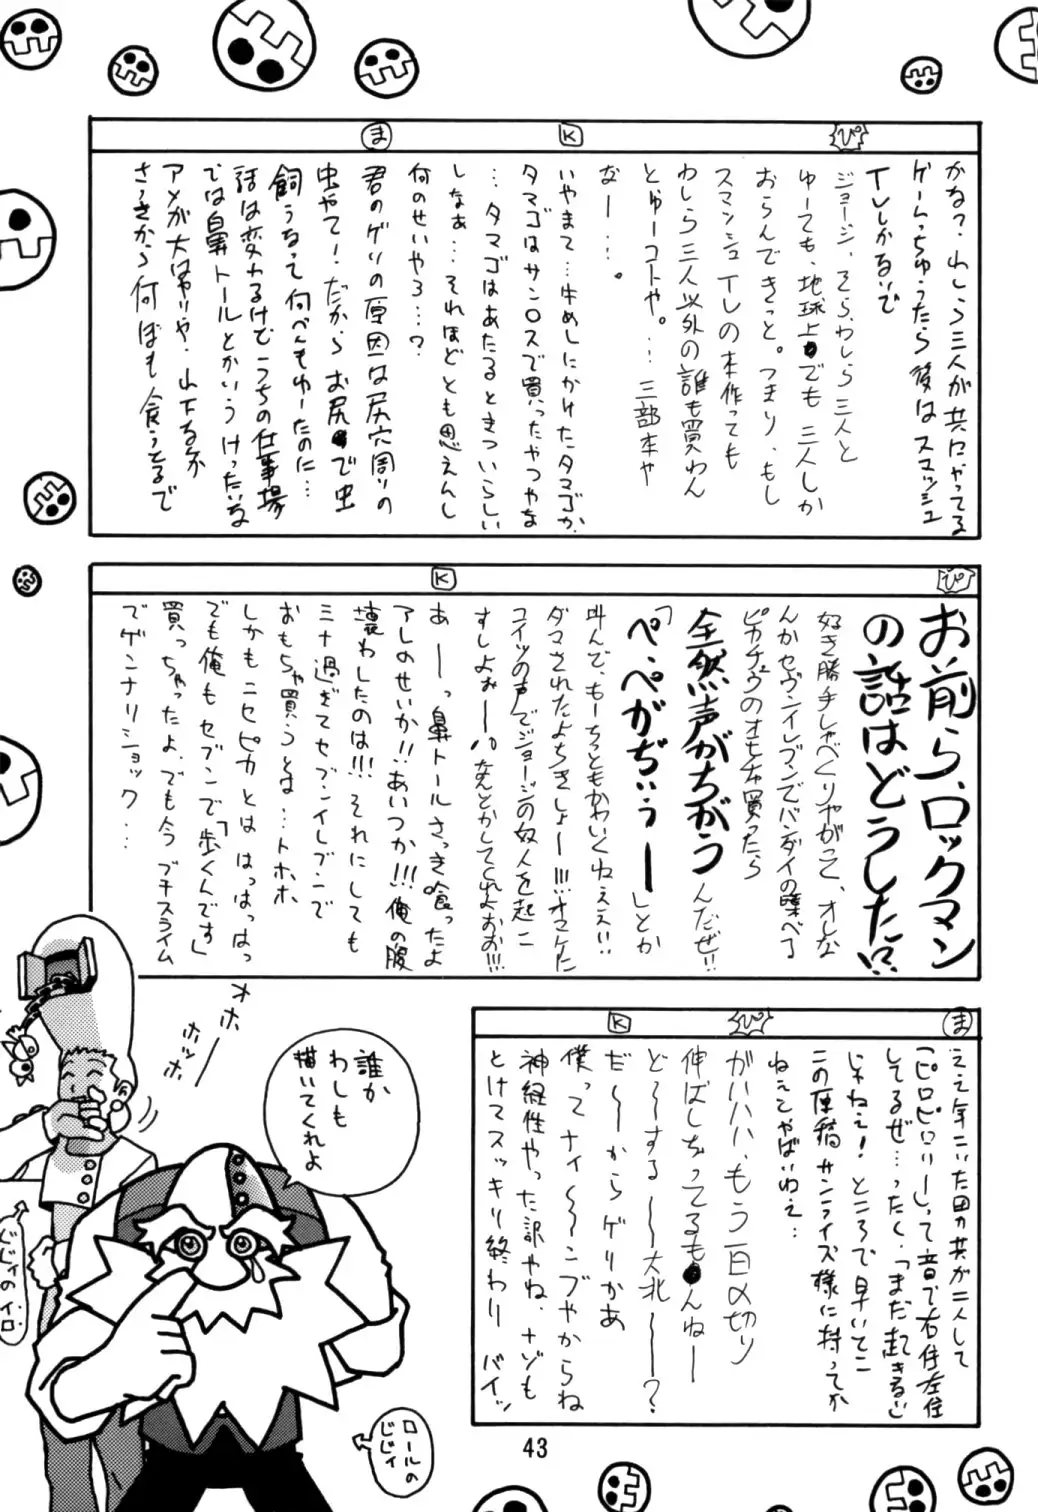 ぴ
かな?わしら三人が共にやってる
ゲームっちゅうたら後はスマッシュ
TVしかないで
ジョージ、そら、わしら三人と
ゆーても、地球上でも三人しか
おらんできっと。つまり、もし
スマッシュTVの本作っても
わしら三人以外の誰も買わん
とゆーコトや。…三部本や
なー…。
K
いやまて…牛めしにかけたタマゴか、
タマゴはサンロスで買ったやつやな
…タマゴはあたるときついらしい
しなぁ…それほどとも思えんし
何のせいやろ…?
ま
君のゲリの原因は尻穴周りの
虫やて!だから、お尻で虫
飼うなって何べんもゆーたのに…
話は変わるけどうちの仕事場
では鼻トールとかいうけったいな
アメが大はやりや、山下るか
さっきから何ぼも食うてるで
ぴ
お前ら、ロックマン
の話はどうした!?
好き勝手しゃべくりやがって、オレな
んかセヴンイレブンでバンダイの喋べる
ピカチュウのオモチャ買ったら
全然声がちがう
んだぜ!!
「ぺ、ぺがぢぃぅー」とか
叫んで、もーちっともかわいくねェェ!!
ダマされたよちきしょー!!!オマケに
コイツの声でジョージの奴人を起こ
すしよぉー!なんとかしてくれよおお!!!
K
あーーっ鼻トールさっき喰ったよ
アレのせいか!!あいつか!!!俺の腹
壊わしたのは!!!それにしても
ミナ過ぎてセブンイレブンで
おもちゃ買うとは…トホホ
しかもニセピカとははっはっはっ
でも俺もセブンで「歩くんです」
買っちゃったよ、でも今プチスライム
でゲンナリショック…
ま
ええ年こいた田力共が二人して
「ピロピロリー」って音で右往左往
してるぜ…ったく、「まだ起きるい
じゃねぇ!ところで早いてこ
この原稿サンライズ様に持ってか
ねぇとやばいねぇ…
ぴ
がハハハ、もう一日〆切り
伸ばしちってるもんねー
ど〜〜する〜〜大北ーー?
K
だ〜〜からゲリかぁ
僕ってナイ〜〜ンブやからね
神経性やった訳やね、ナゾも
とけてスッキリ終わり バイッ
オホーー
ホッホ
誰か
わしも
描いてくれよ
じじぃのイロ
ロールの
じじィ
43